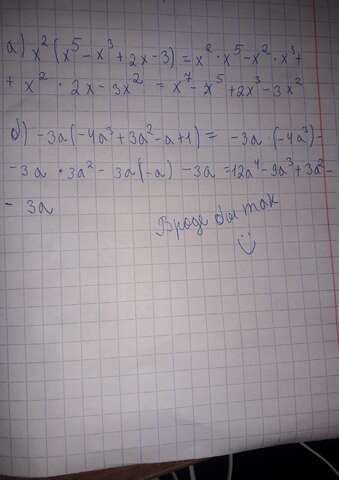 а) x²(x⁵-x³+2x-3)=x²·x⁵-x²·x³+
+x²·2x-3x²=x⁷-x⁵+2x³-3x²
б) -3a(-4a³+3a²-a+1)= -3a·(-4a³)-
-3a·3a²-3a(-a)-3a=12a⁴-9a³+3a²-
- 3a
Вроде бы так